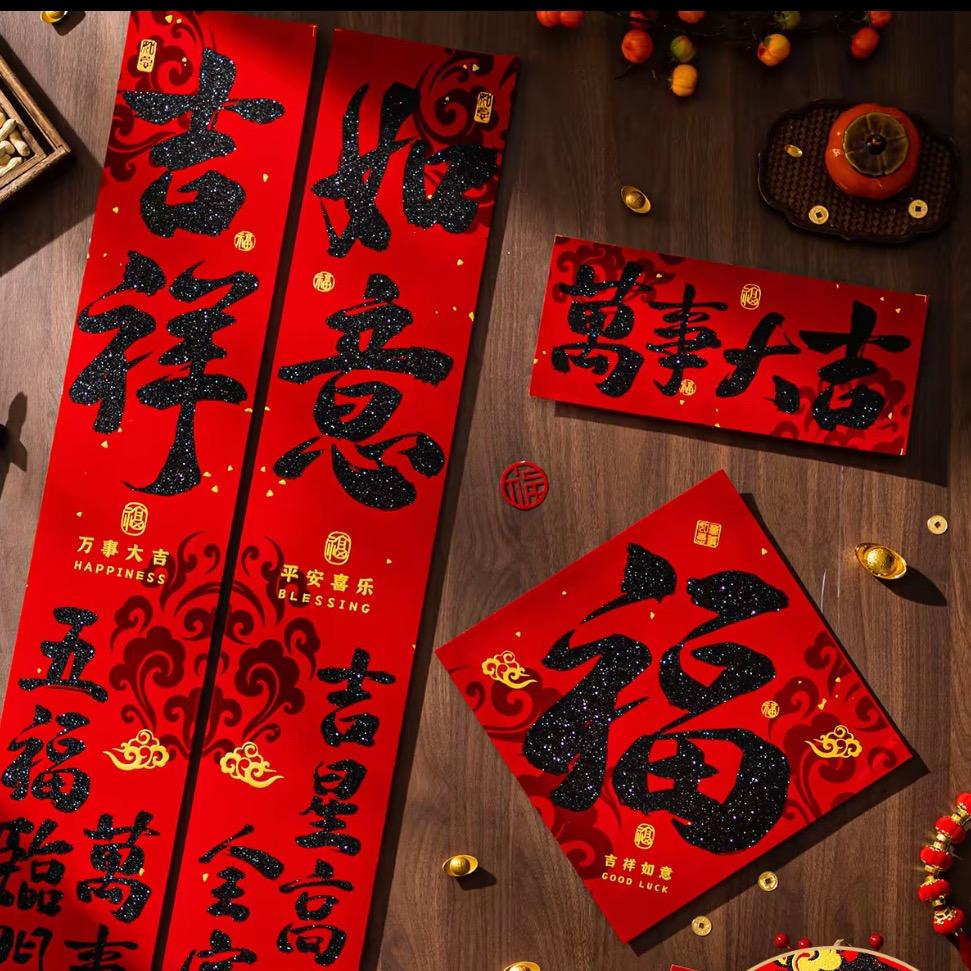 吉祥
福
万事大吉
HAPPINESS
五福臨門
萬事
如意
福
平安喜乐
BLESSING
吉星高
全家
萬事大吉
福
福
福
吉祥如意
GOOD LUCK